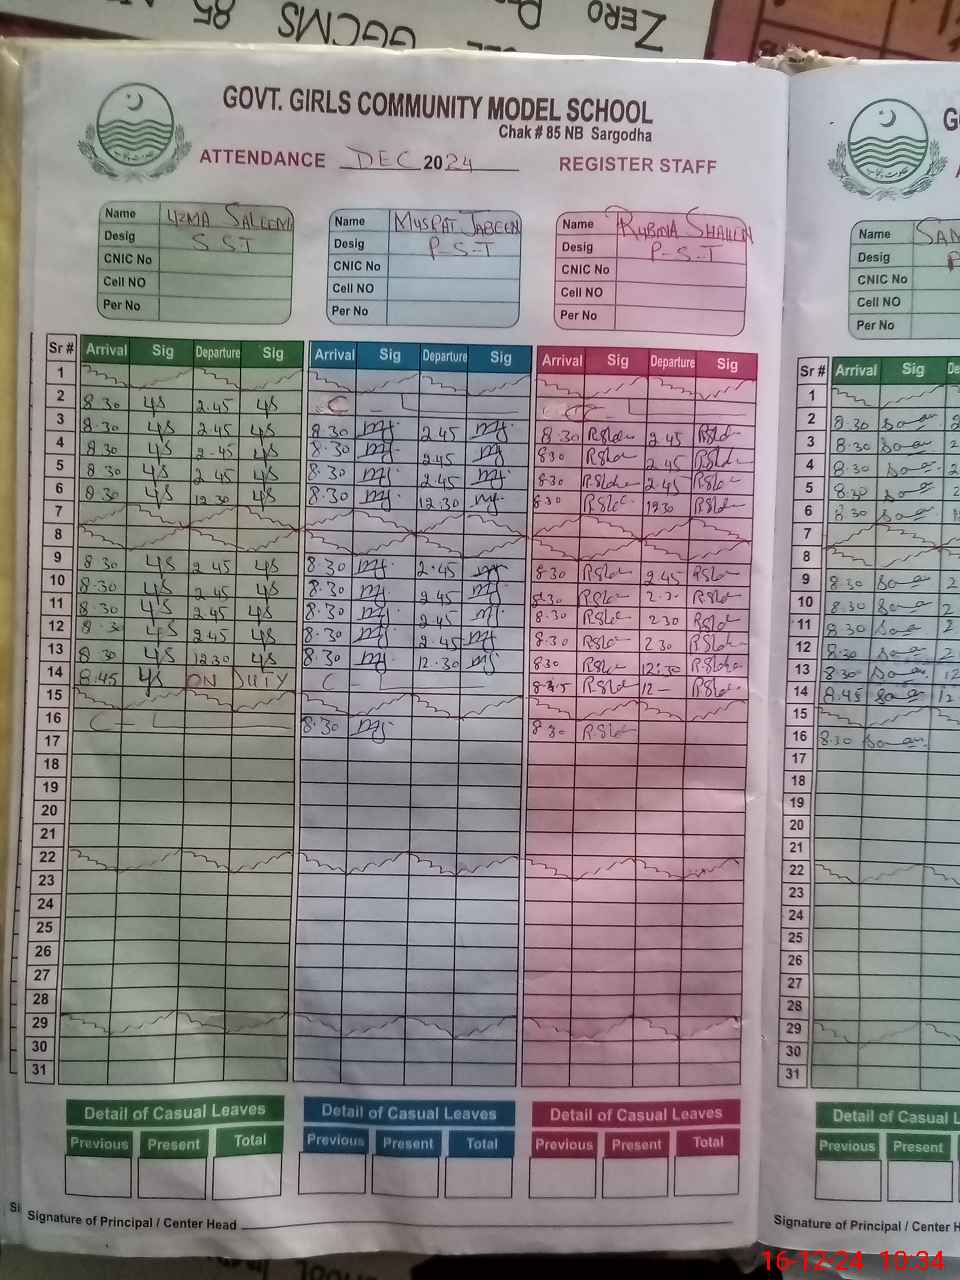 ZERO
GGCMS 85
GOVT. GIRLS COMMUNITY MODEL SCHOOL
Chak # 85 NB Sargodha
ATTENDANCE DEC 2024 REGISTER STAFF
Name UZMA SALEEM Name MUSRAT JABEEN Name RUBINA SHAHEEN
Desig S.S.T Desig P-S-T Desig P-S-T
CNIC No CNIC No CNIC No
Cell NO Cell NO Cell NO
Per No Per No Per No
Sr # Arrival Sig Departure Sig Arrival Sig Departure Sig Arrival Sig Departure Sig
1
2 8.30 ys 2.45 ys C - L
3 8.30 ys 2.45 ys 8.30 mj 2 45 mj 8 30 2 45
4 8.30 ys 2.45 ys 8.30 mj 2.45 mj 830 2.45
5 8.30 ys 2.45 ys 8.30 mj 2.45 mj 8.30 2.45
6 8.30 ys 12.30 ys 8.30 mj 12.30 mj 8.30
7
8
9 8 30 ys 2 45 ys 8.30 mj 2.45 mj 8.30 2.45
10 8.30 ys 2.45 ys 8.30 mj 2.45 mj 8.30
11 8.30 ys 2.45 ys 8.30 mj 2.45 mj 8.30 2 30
12 8.30 ys 2.45 ys 8.30 mj 2.45 mj 8.30 2 30
13 8.30 ys 12.30 ys 8.30 mj 12.30 mj 830 12.30
14 8.45 ys ON DUTY C L 8.45 12
15
16 C - L 8.30 mj 8 30
17
18
19
20
21
22
23
24
25
26
27
28
29
30
31
Detail of Casual Leaves Detail of Casual Leaves Detail of Casual Leaves
Previous Present Total Previous Present Total Previous Present Total
Signature of Principal / Center Head
Name SAM
Desig P
CNIC No
Cell NO
Per No
Sr # Arrival Sig De
1
2 8.30
3 8.30
4 8.30
5 8.30
6 8.30
7
8
9 8.30
10 8.30
11 8.30
12 8.30
13 8.30
14 8.45
15
16 8.30
17
18
19
20
21
22
23
24
25
26
27
28
29
30
31
Detail of Casual L
Previous Present
Signature of Principal / Center H
16-12-24 10:34